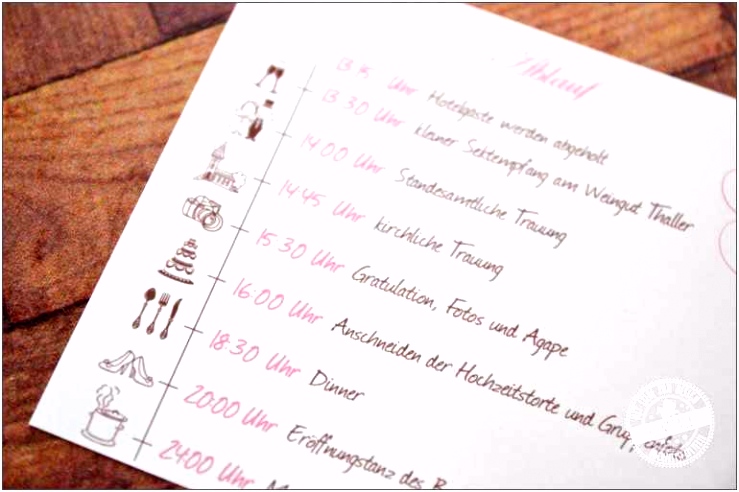 Ablauf
13:15 Uhr Hotelgäste werden abgeholt
13:30 Uhr kleiner Sektempfang am Weingut Thaller
14:00 Uhr Standesamtliche Trauung
14:45 Uhr kirchliche Trauung
15:30 Uhr Gratulation, Fotos und Agape
16:00 Uhr Anschneiden der Hochzeitstorte und
18:30 Uhr Dinner
20:00 Uhr Eröffnungstanz des
24:00 Uhr